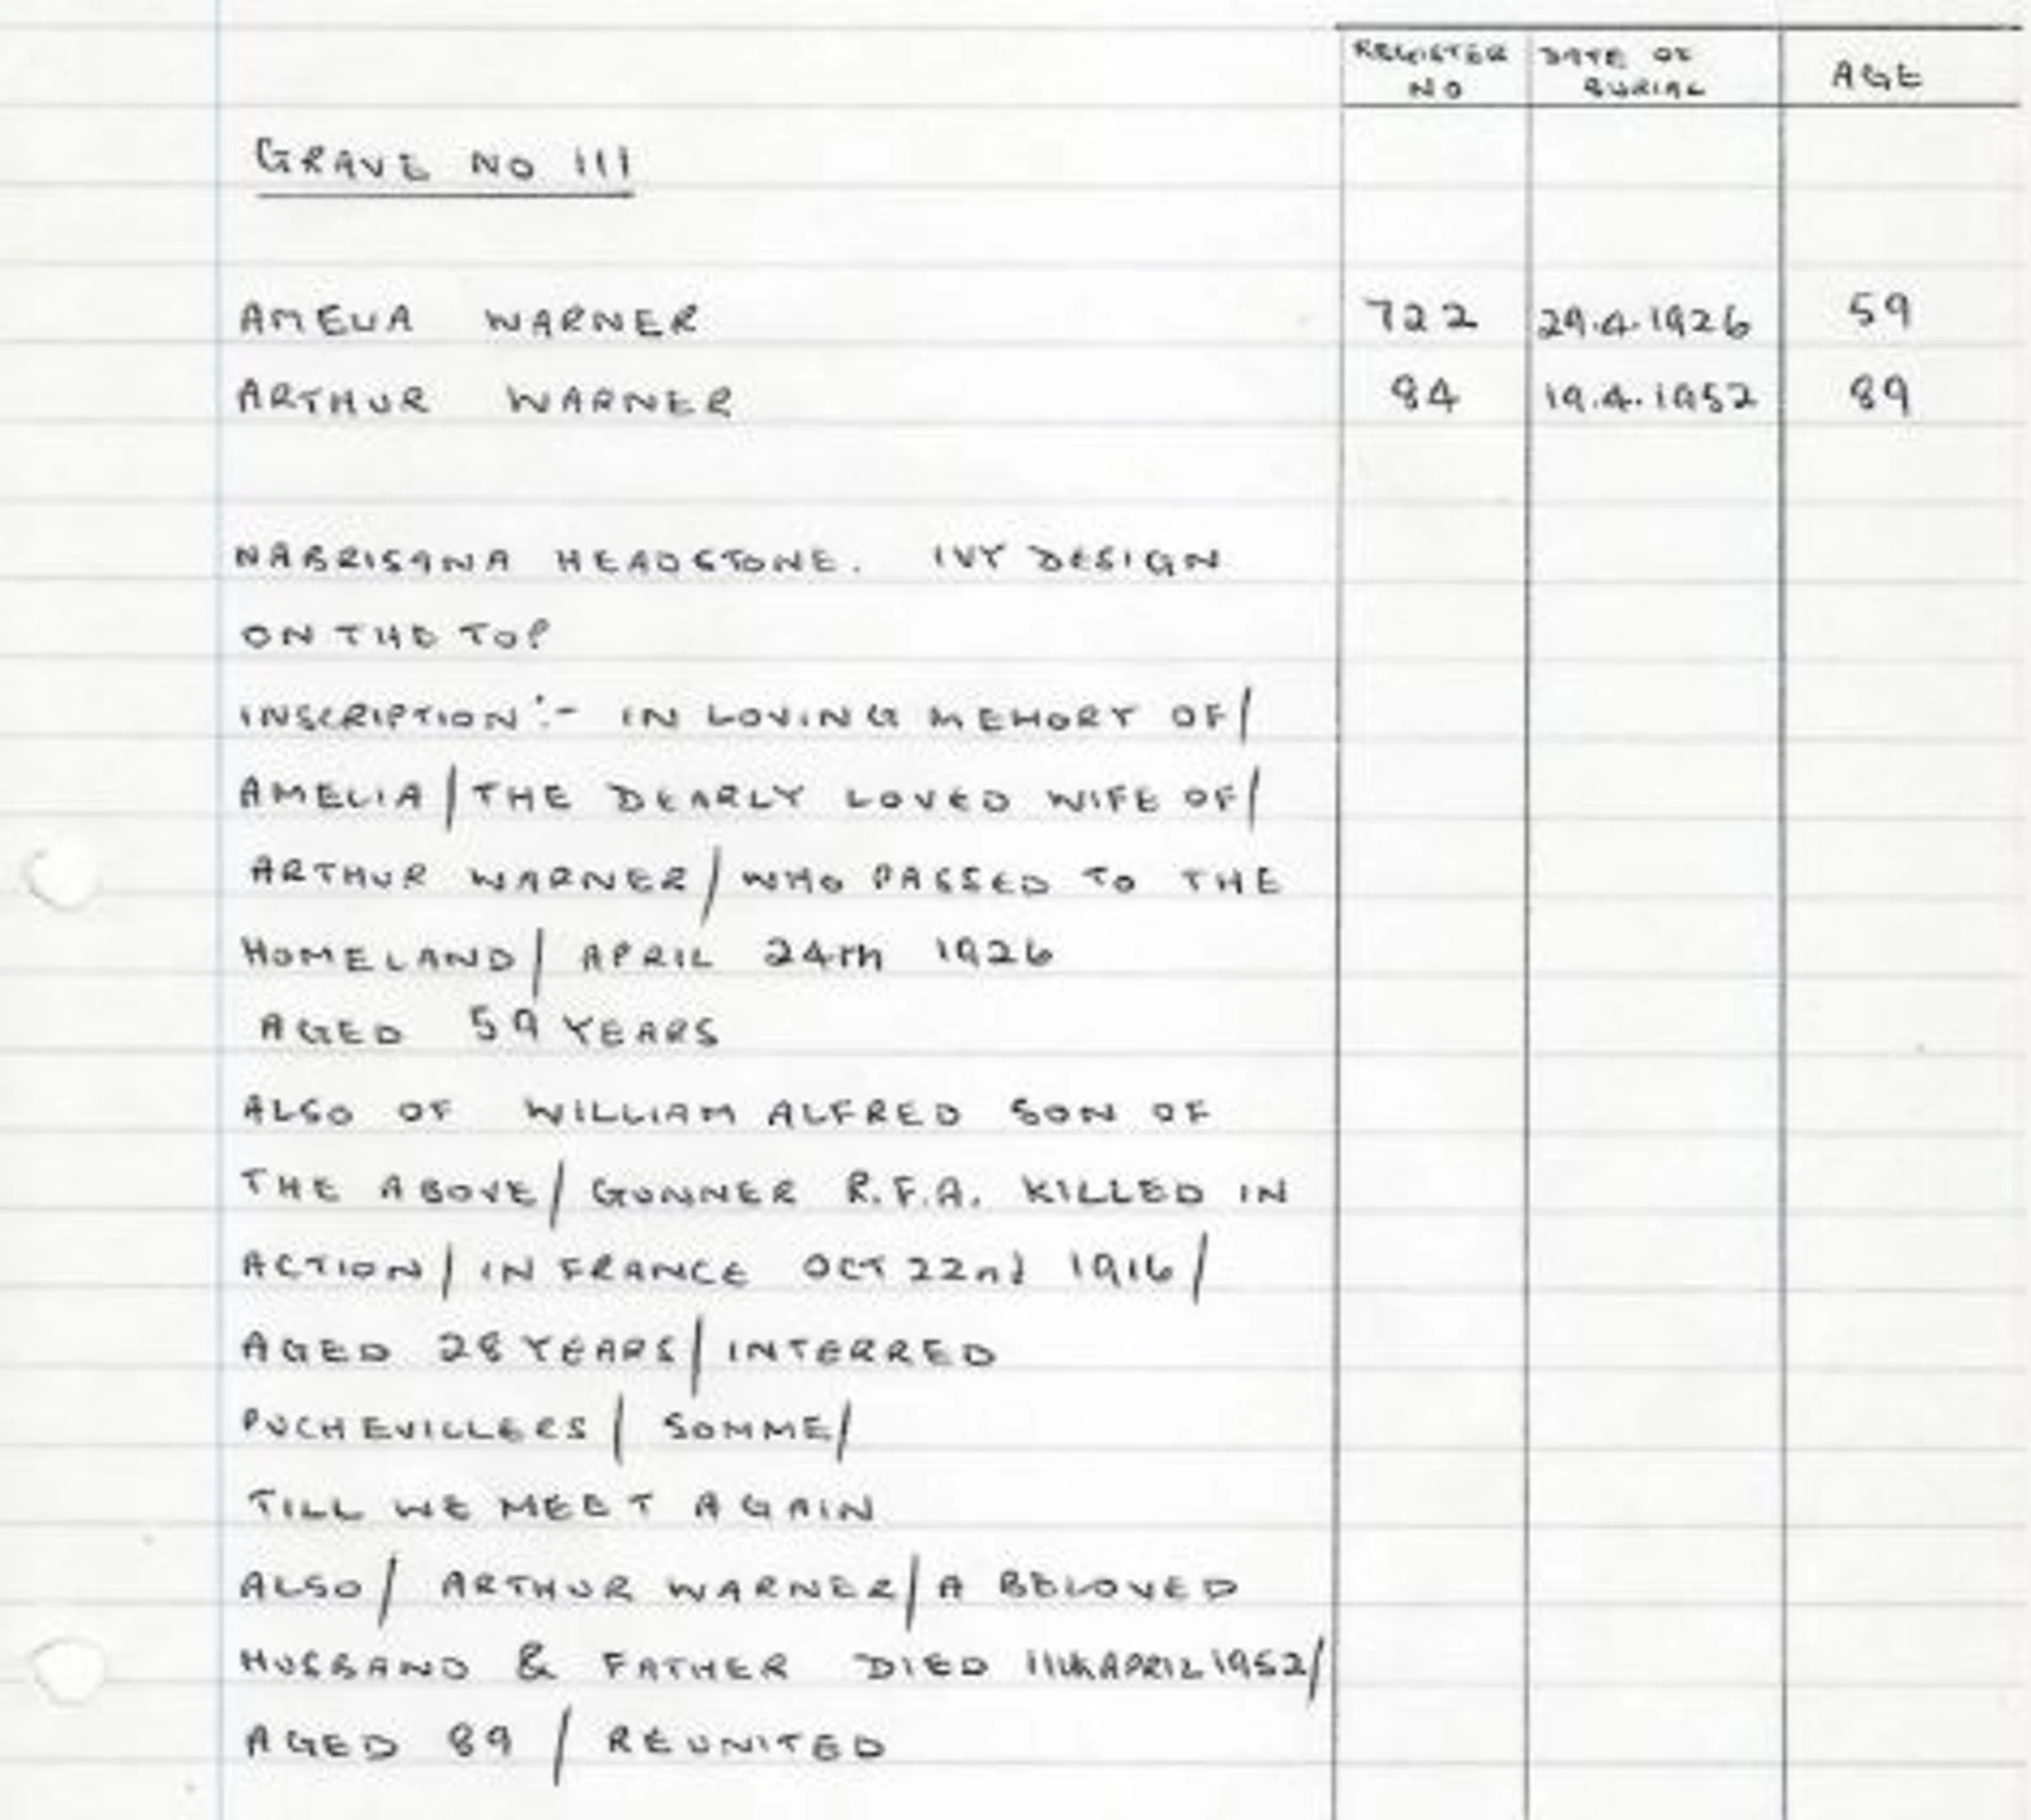 REGISTER NO DATE OF BURIAL AGE
GRAVE NO 111
AMELIA WARNER 722 29.4.1926 59
ARTHUR WARNER 84 19.4.1952 89
NABRISANA HEADSTONE. IVY DESIGN
ON THE TOP
INSCRIPTION :- IN LOVING MEMORY OF/
AMELIA/THE DEARLY LOVED WIFE OF/
ARTHUR WARNER/WHO PASSED TO THE
HOMELAND/ APRIL 24th 1926
AGED 59 YEARS
ALSO OF WILLIAM ALFRED SON OF
THE ABOVE/ GUNNER R.F.A. KILLED IN
ACTION/ IN FRANCE OCT 22nd 1916/
AGED 28 YEARS/ INTERRED
PUCHEVILLERS/ SOMME/
TILL WE MEET AGAIN
ALSO/ ARTHUR WARNER/A BELOVED
HUSBAND & FATHER DIED 11th APRIL 1952/
AGED 89 / REUNITED